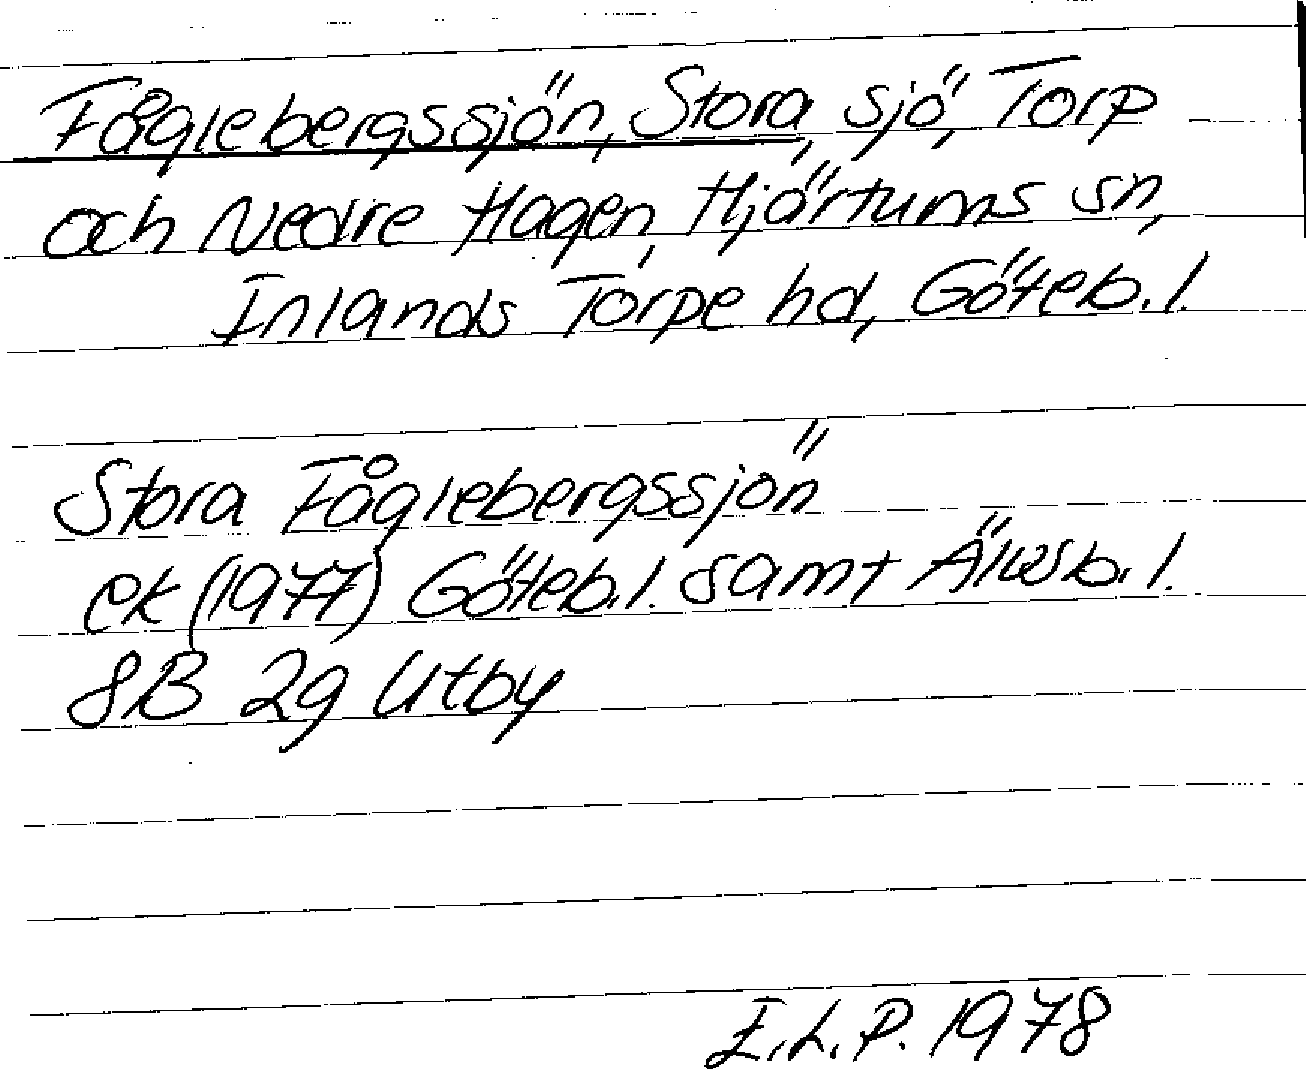 Fåglebergssjön, Stora, sjö, Torp
och Nedre Hagen, Hjärtums sn,
Inlands Torpe hd, Göteb. l.
Stora Fåglebergssjön
ek (1977) Göteb. l. samt Älvsb. l.
8B 2g Utby
E.L.P. 1978